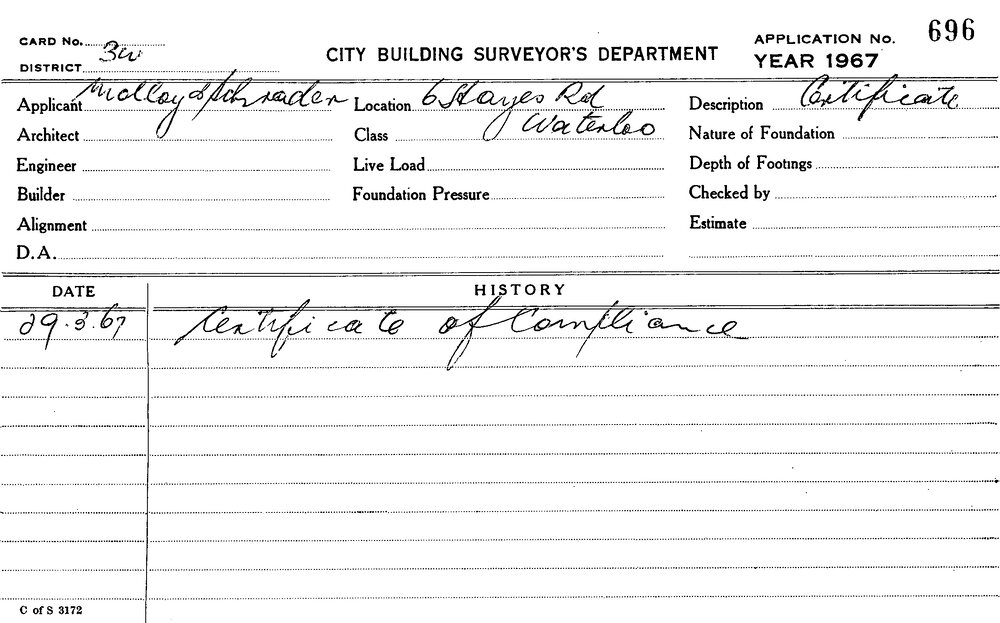 CARD No. 3W
DISTRICT
CITY BUILDING SURVEYOR'S DEPARTMENT
APPLICATION No. 696
YEAR 1967
Applicant Molloy & Schrader Location 6 Hayes Rd Description Certificate
Architect Class Waterloo Nature of Foundation
Engineer Live Load Depth of Footings
Builder Foundation Pressure Checked by
Alignment Estimate
D.A.
DATE HISTORY
29.3.67 Certificate of Compliance
C of S 3172